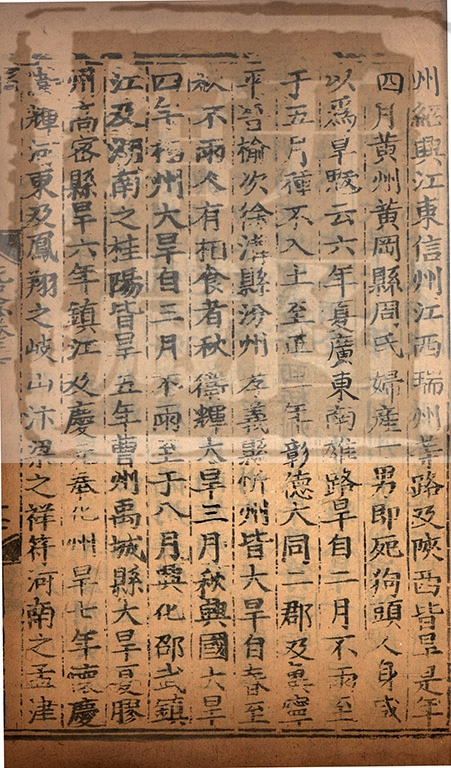 州紹興江東信州江西瑞州等路及陝西皆旱是年
四月黃州黃岡縣周氏婦產一男即死狗頭人身或
以爲旱魃云六年夏廣東南雄路旱自二月不雨至
于五月種不入土至正二年彰德大同二郡及冀寧
平晉榆次徐溝縣汾州孝義縣忻州皆大旱自春至
秋不雨人有相食者秋衛輝大旱三月秋興國大旱
四年福州大旱自三月不雨至于八月興化邵武鎮
江及湖南之桂陽皆旱五年曹州禹城縣大旱夏膠
州高密縣旱六年鎮江及慶元奉化州旱七年懷慶
衛輝河東及鳳翔之岐山汴梁之祥符河南之孟津